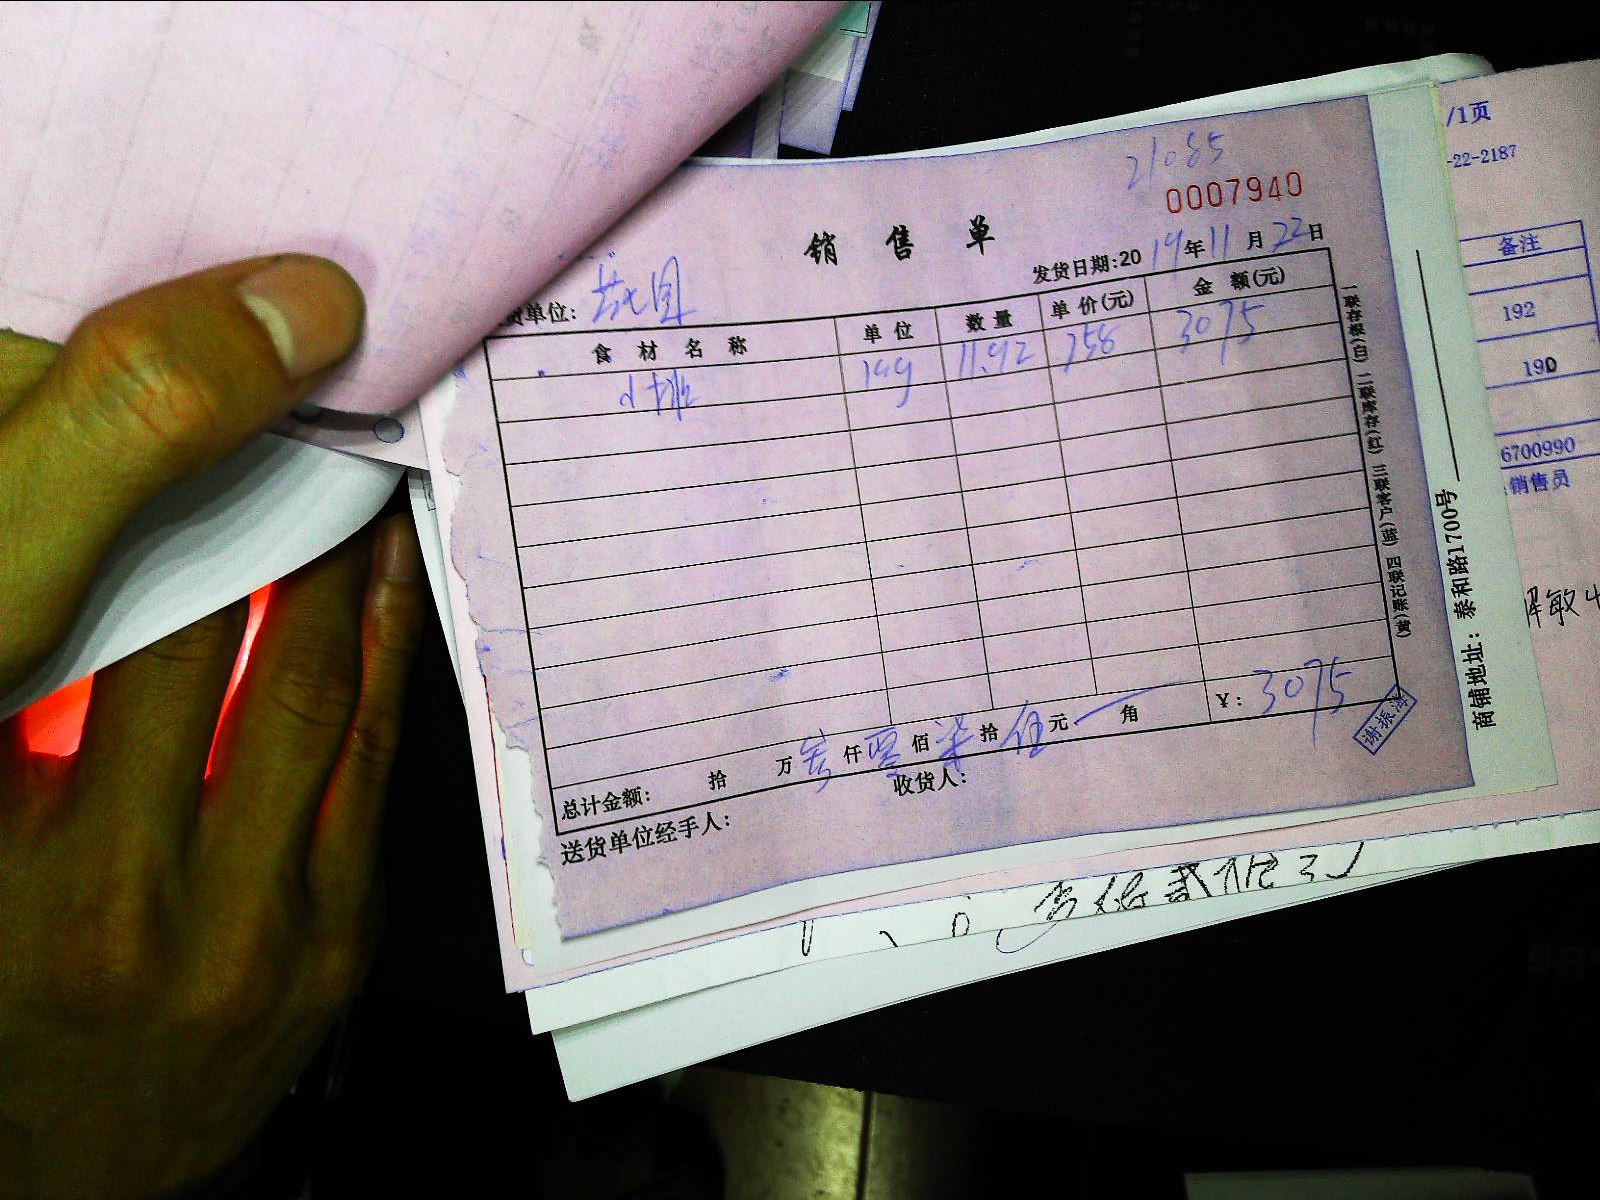 21085
0007940
销售单
发货日期:2019年11月22日
货单位:
食材名称 单位 数量 单价(元) 金额(元)
11.92 258 3075
总计金额: 拾 万 叁仟零佰柒拾伍元 角 ¥: 3075
送货单位经手人: 收货人:
一联存根(白) 二联库存(红) 三联客户(蓝) 四联记账(黄)
谢振涛
商铺地址: 泰和路1700号
/1页
-22-2187
备注
192
190
6700990
销售员